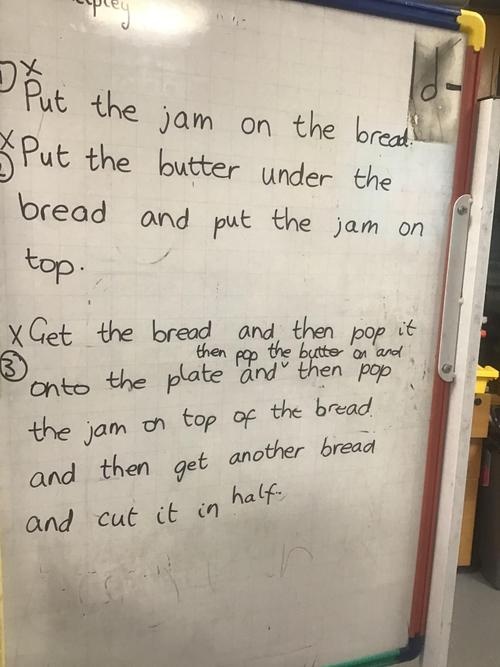 1) X
Put the jam on the bread.
X
2 Put the butter under the
bread and put the jam on
top.
X Get the bread and then pop it
then pop the butter on and
3 onto the plate and ˅ then pop
the jam on top of the bread
and then get another bread
and cut it in half.
d